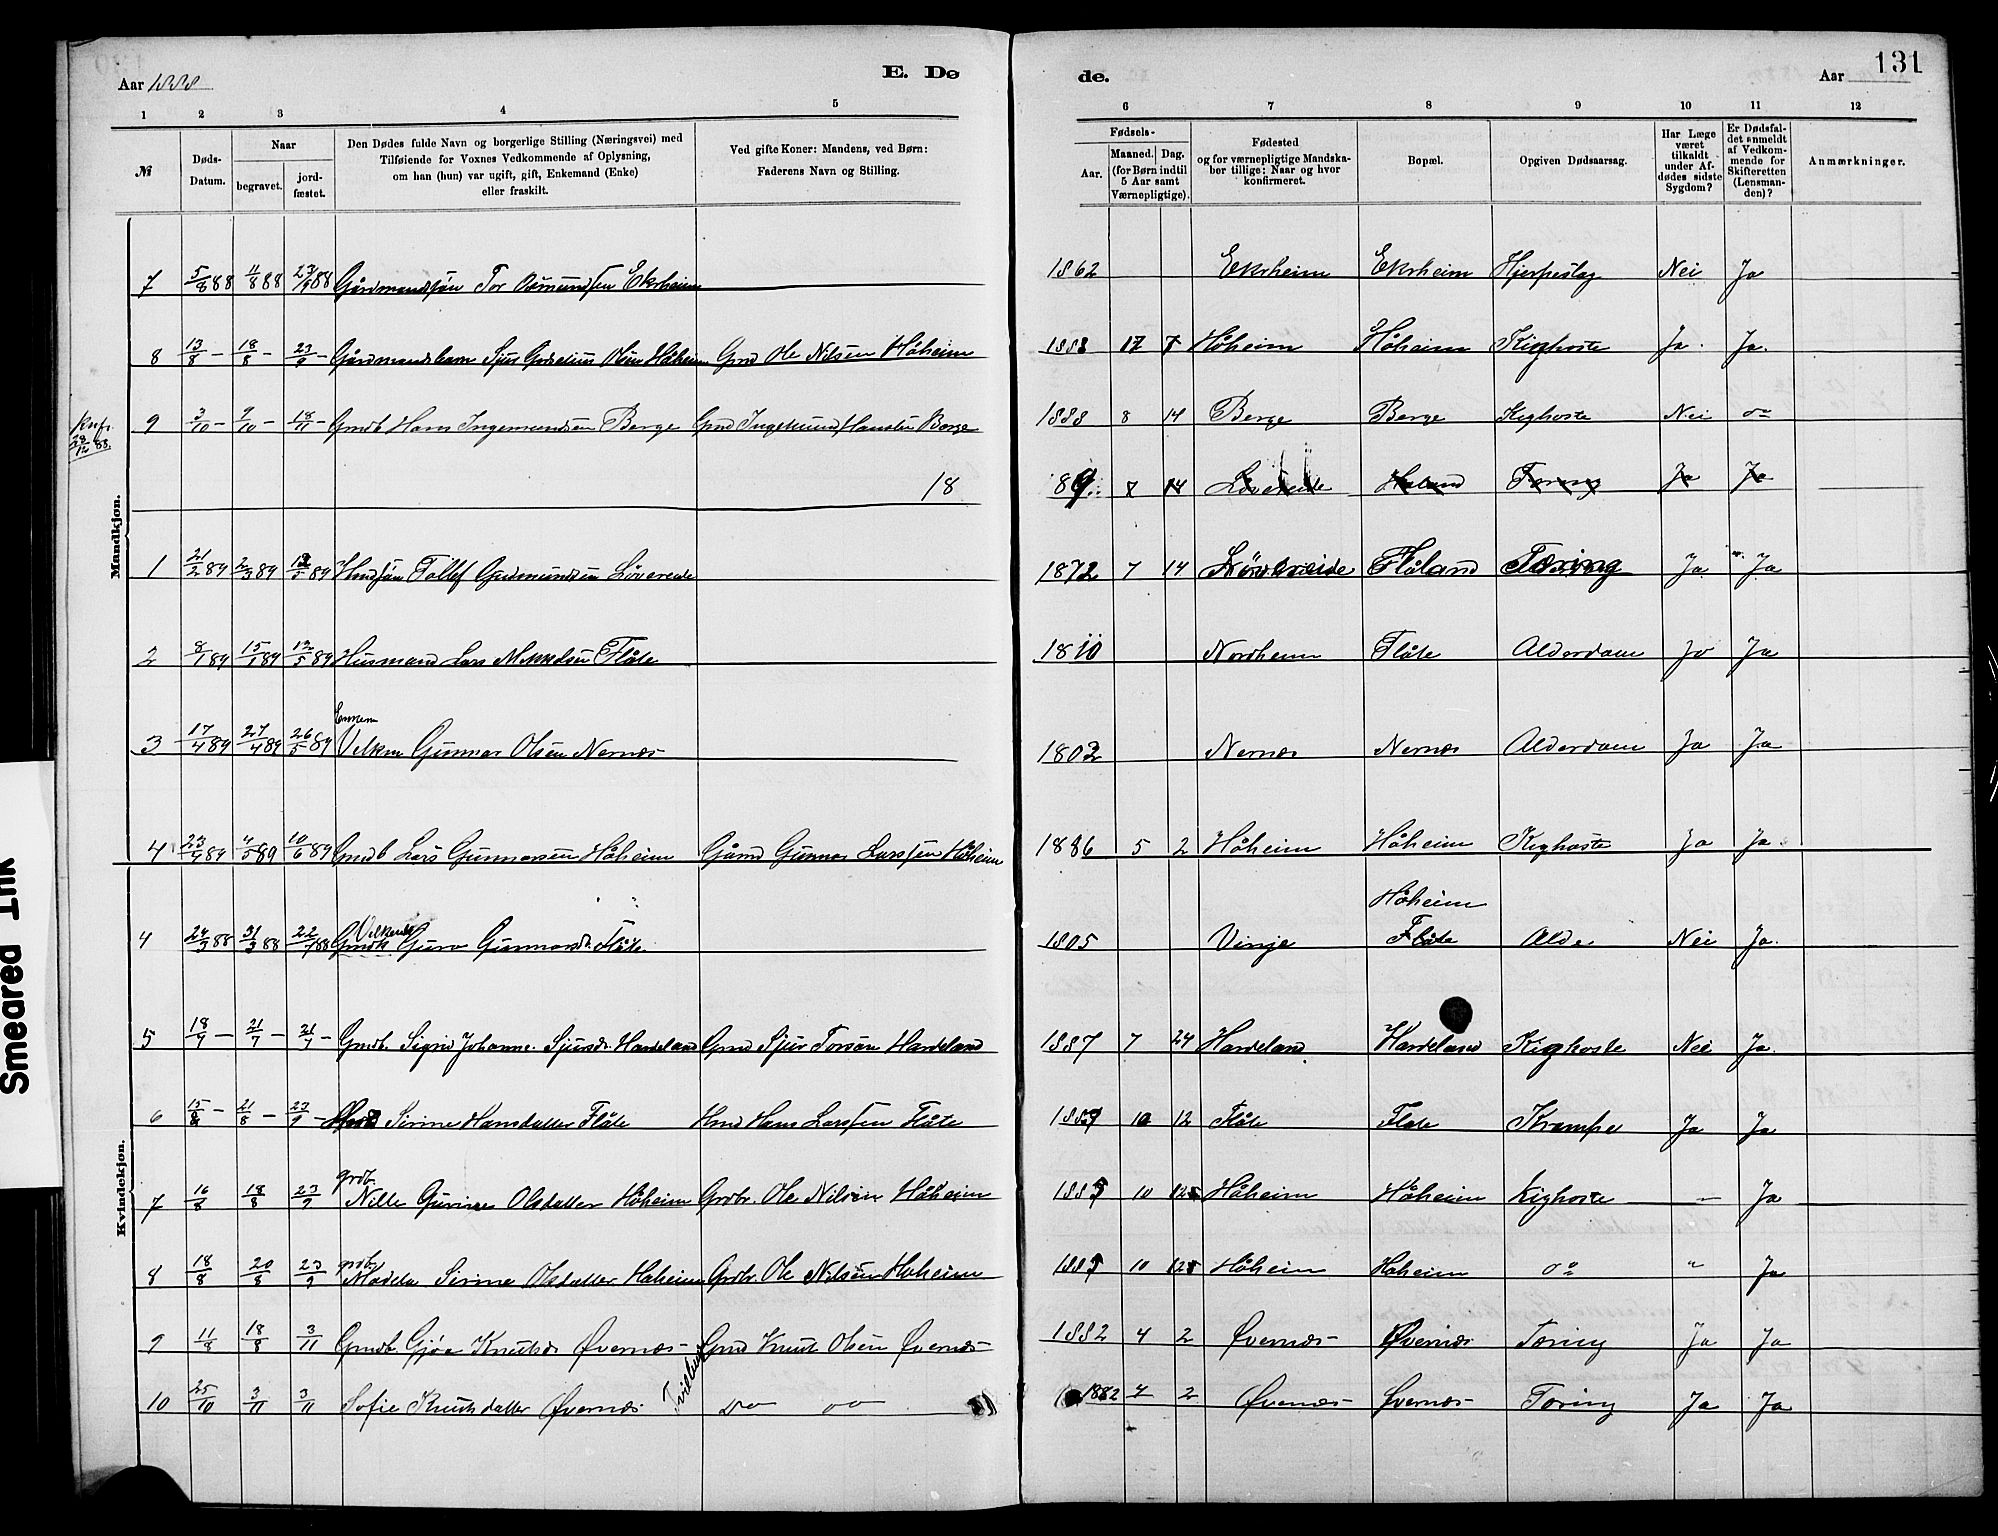 Aar 1888 E. Dø de. Aar 131
1 2 3 4 5 6 7 8 9 10 11 12
№ Døds-Datum. Naar begravet. jord-fæstet. Den Dødes fulde Navn og borgerlige Stilling (Næringsvei) med Tilføiende for Voxnes Vedkommende af Oplysning, om han (hun) var ugift, gift, Enkemand (Enke) eller fraskilt. Ved gifte Koner: Mandens, ved Børn: Faderens Navn og Stilling. Fødsels- Aar. Maaned. Dag. (for Børn indtil 5 Aar samt Værnepligtige). Fødested og for værnepligtige Mandskaber tillige: Naar og hvor konfirmeret. Bopæl. Opgiven Dødsaarsag. Har Læge været tilkaldt under Afdødes sidste Sygdom? Er Dødsfaldet anmeldt af Vedkommende for Skifteretten (Lensmanden)? Anmærkninger.
Mandkjøn.
7 5/8 88 11/8 88 23/9 88 Gårdmandssøn Tor Osmundsen Ekrheim 1862 Ekrheim Ekrheim Hjerpeslag Nei Ja
8 13/8 - 18/8 - 23/9 - Gårdmandsbarn Sjur Olsen Håheim Grd Ole Nilsen Håheim 1888 Håheim Håheim Kighoste Ja. Ja.
9 3/10 - 9/10 - 18/11 - Gmdb Hans Ingemundsen Berge Gmd Ingemund Hansen Berge 1888 8 14 Berge Berge Kighoste Nei do
28/12 88.
18 89 14 Løvereide Tæring Ja Ja
1 21/2 89 2/3 89 Tollef Gudmundsen Løvereide 1872 7 14 Flåland Tæring Ja Ja
2 8/1 89 15/1 89 12/5 89 Husmand Lars Flåte 1810 Nordheim Flåte Alderdom Ja Ja
Enkem
3 17/4 89 27/4 89 26/5 89 Vilkm Gunnar Olsen Nernæs 1803 Nernæs Nernæs Alderdom Ja Ja
4 23/4 89 4/5 89 10/6 89 Gmdb Lars Gunnarsen Håheim Gårm Gunnar Larssen Håheim 1886 5 2 Håheim Håheim Kighoste Ja Ja
Kvindekjøn.
Håheim
4 24/3 88 31/3 88 Guro Gunnarsd. Flåte 1805 Vinje Flåte Alde. Nei Ja.
5 18/7 - 21/7 - 21/7 - Gmdb. Sigrid Johanne Sjursd. Hardeland Gmd Sjur Torsøn Hardeland 1887 7 24 Hardeland Hardeland Kighoste Nei Ja.
6 15/8 - 21/8 - 23/9 - Sirine Hansdatter Flåte Hmd Hans Larssen Flåte 10 12 Flåte Flåte Krampe Ja Ja
grdb.
7 16/8 18/8 23/9 Nille Gurine Olsdatter Håheim Grdbr. Ole Nilsen Håheim 10 Håheim Håheim Kighoste - Ja
grdb.
8 18/8 20/8 23/9 Sirine Olsdatter Håheim Grdbr. Ole Nilsen Håheim 10 Håheim Håheim do " Ja
9 11/8 18/8 3/11 Gmdb Gjøa Knutsd. Øvernæs- Gmd Knut Olsen Øvernæs- 1882 4 2 Øvernæs- Øvernæs Tæring Ja Ja
10 25/10 3/11 3/11 Sofie Knutsdatter Øvernæs. do do 1882 4 2 Øvernæs- Øvernæs- Tæring Ja Ja
Smeared Ink